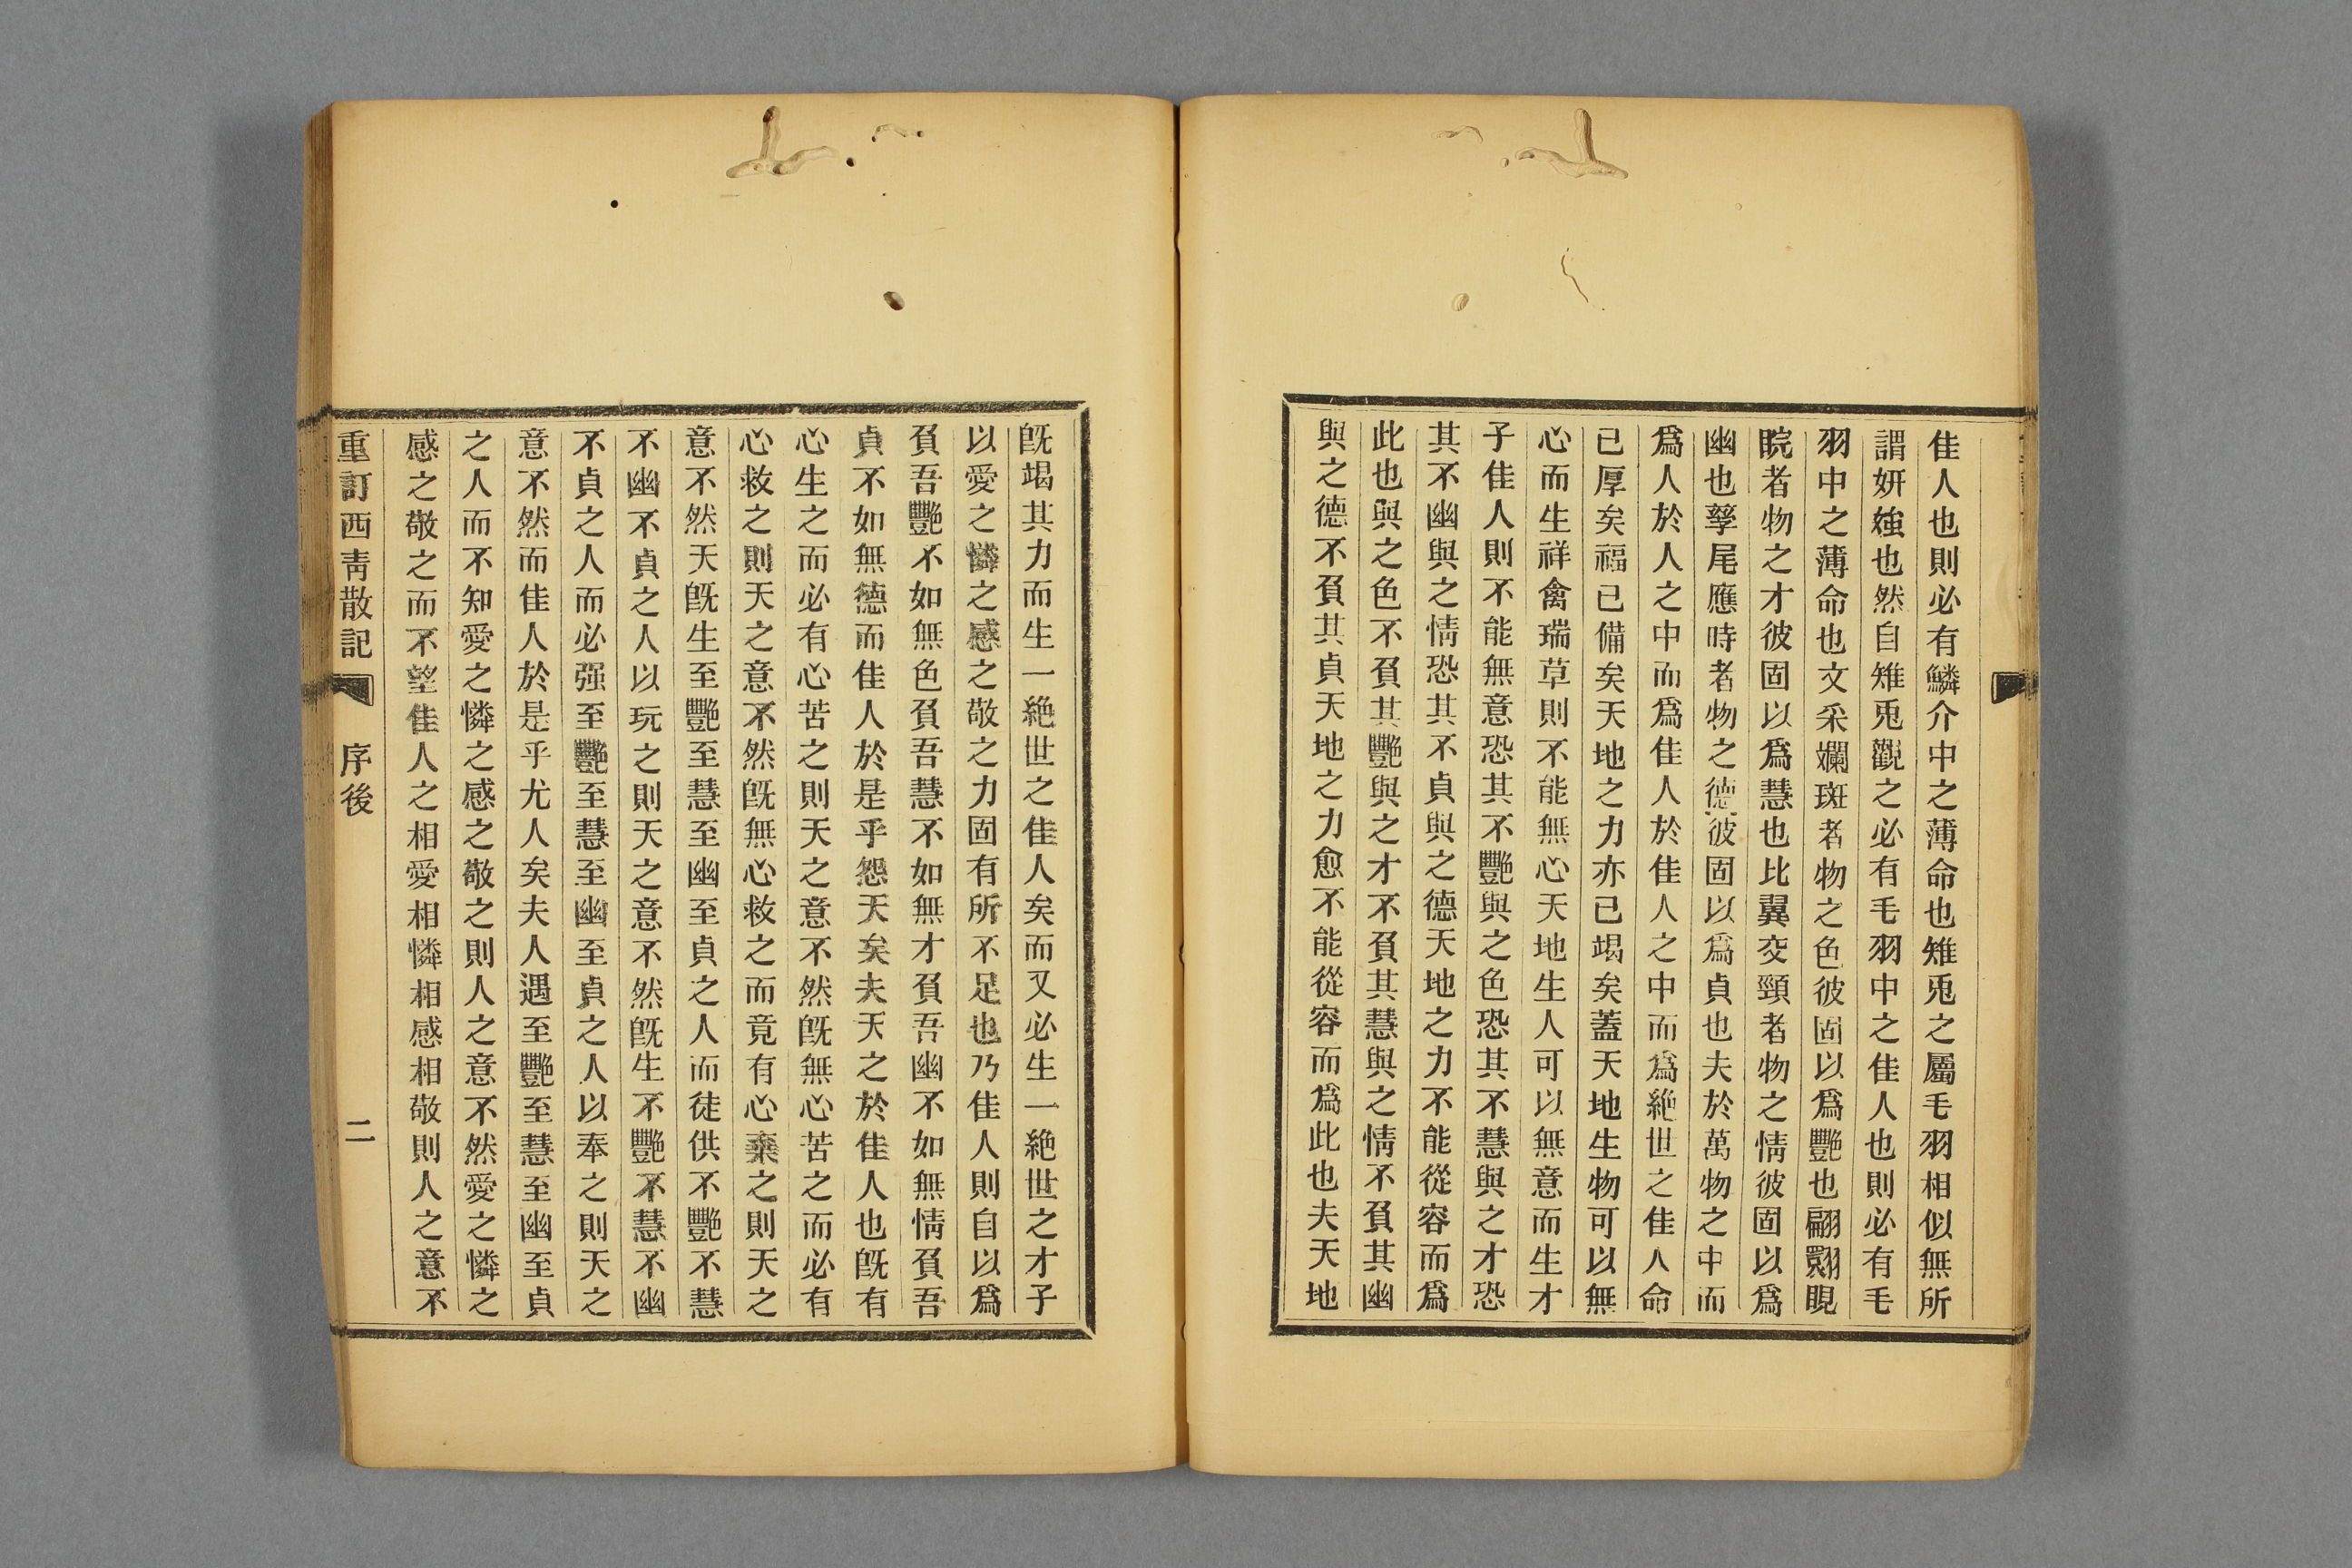 佳人也則必有鱗介中之薄命也雉兎之屬毛羽相似無所
謂妍媸也然自雉兎觀之必有毛羽中之佳人也則必有毛
羽中之薄命也文采斕斑者物之色彼固以爲艷也翩翾睍
睆者物之才彼固以爲慧也比翼交頸者物之情彼固以爲
幽也孳尾應時者物之德彼固以爲貞也夫於萬物之中而
爲人於人之中而爲佳人於佳人之中而爲絶世之佳人命
已厚矣福已備矣天地之力亦已竭矣蓋天地生物可以無
心而生祥禽瑞草則不能無心天地生人可以無意而生才
子佳人則不能無意恐其不艷與之色恐其不慧與之才恐
其不幽與之情恐其不貞與之德天地之力不能從容而爲
此也與之色不負其艷與之才不負其慧與之情不負其幽
與之德不負其貞天地之力愈不能從容而爲此也夫天地
旣竭其力而生一絶世之佳人矣而又必生一絶世之才子
以愛之憐之感之敬之力固有所不足也乃佳人則自以爲
負吾艷不如無色負吾慧不如無才負吾幽不如無情負吾
貞不如無德而佳人於是乎怨天矣夫天之於佳人也旣有
心生之而必有心苦之則天之意不然旣無心苦之而必有
心救之則天之意不然旣無心救之而竟有心棄之則天之
意不然天旣生至艷至慧至幽至貞之人而徒供不艷不慧
不幽不貞之人以玩之則天之意不然旣生不艷不慧不幽
不貞之人而必强至艷至慧至幽至貞之人以奉之則天之
意不然而佳人於是乎尤人矣夫人遇至艷至慧至幽至貞
之人而不知愛之憐之感之敬之則人之意不然愛之憐之
感之敬之而不望佳人之相愛相憐相感相敬則人之意不
重訂西靑散記 序後 二